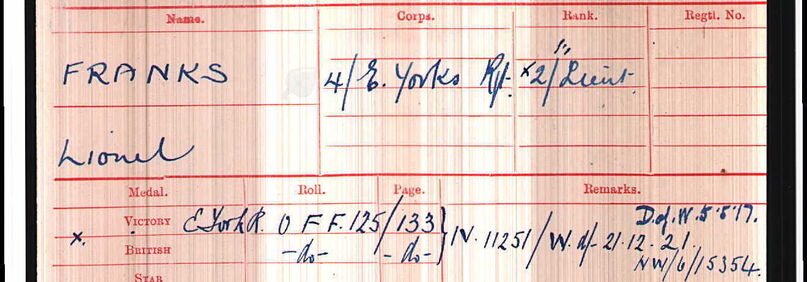 Name. Corps. Rank. Regtl. No.
FRANKS 4/E. Yorks Rgt. x2/Lieut.
Lionel
Medal. Roll. Page. Remarks.
VICTORY E York R. O F F. 125/133 D of W. 5.5.17.
x. IV. 11251/W. d/- 21.12.21.
BRITISH -do- -do- NW/6/15354.
STAR